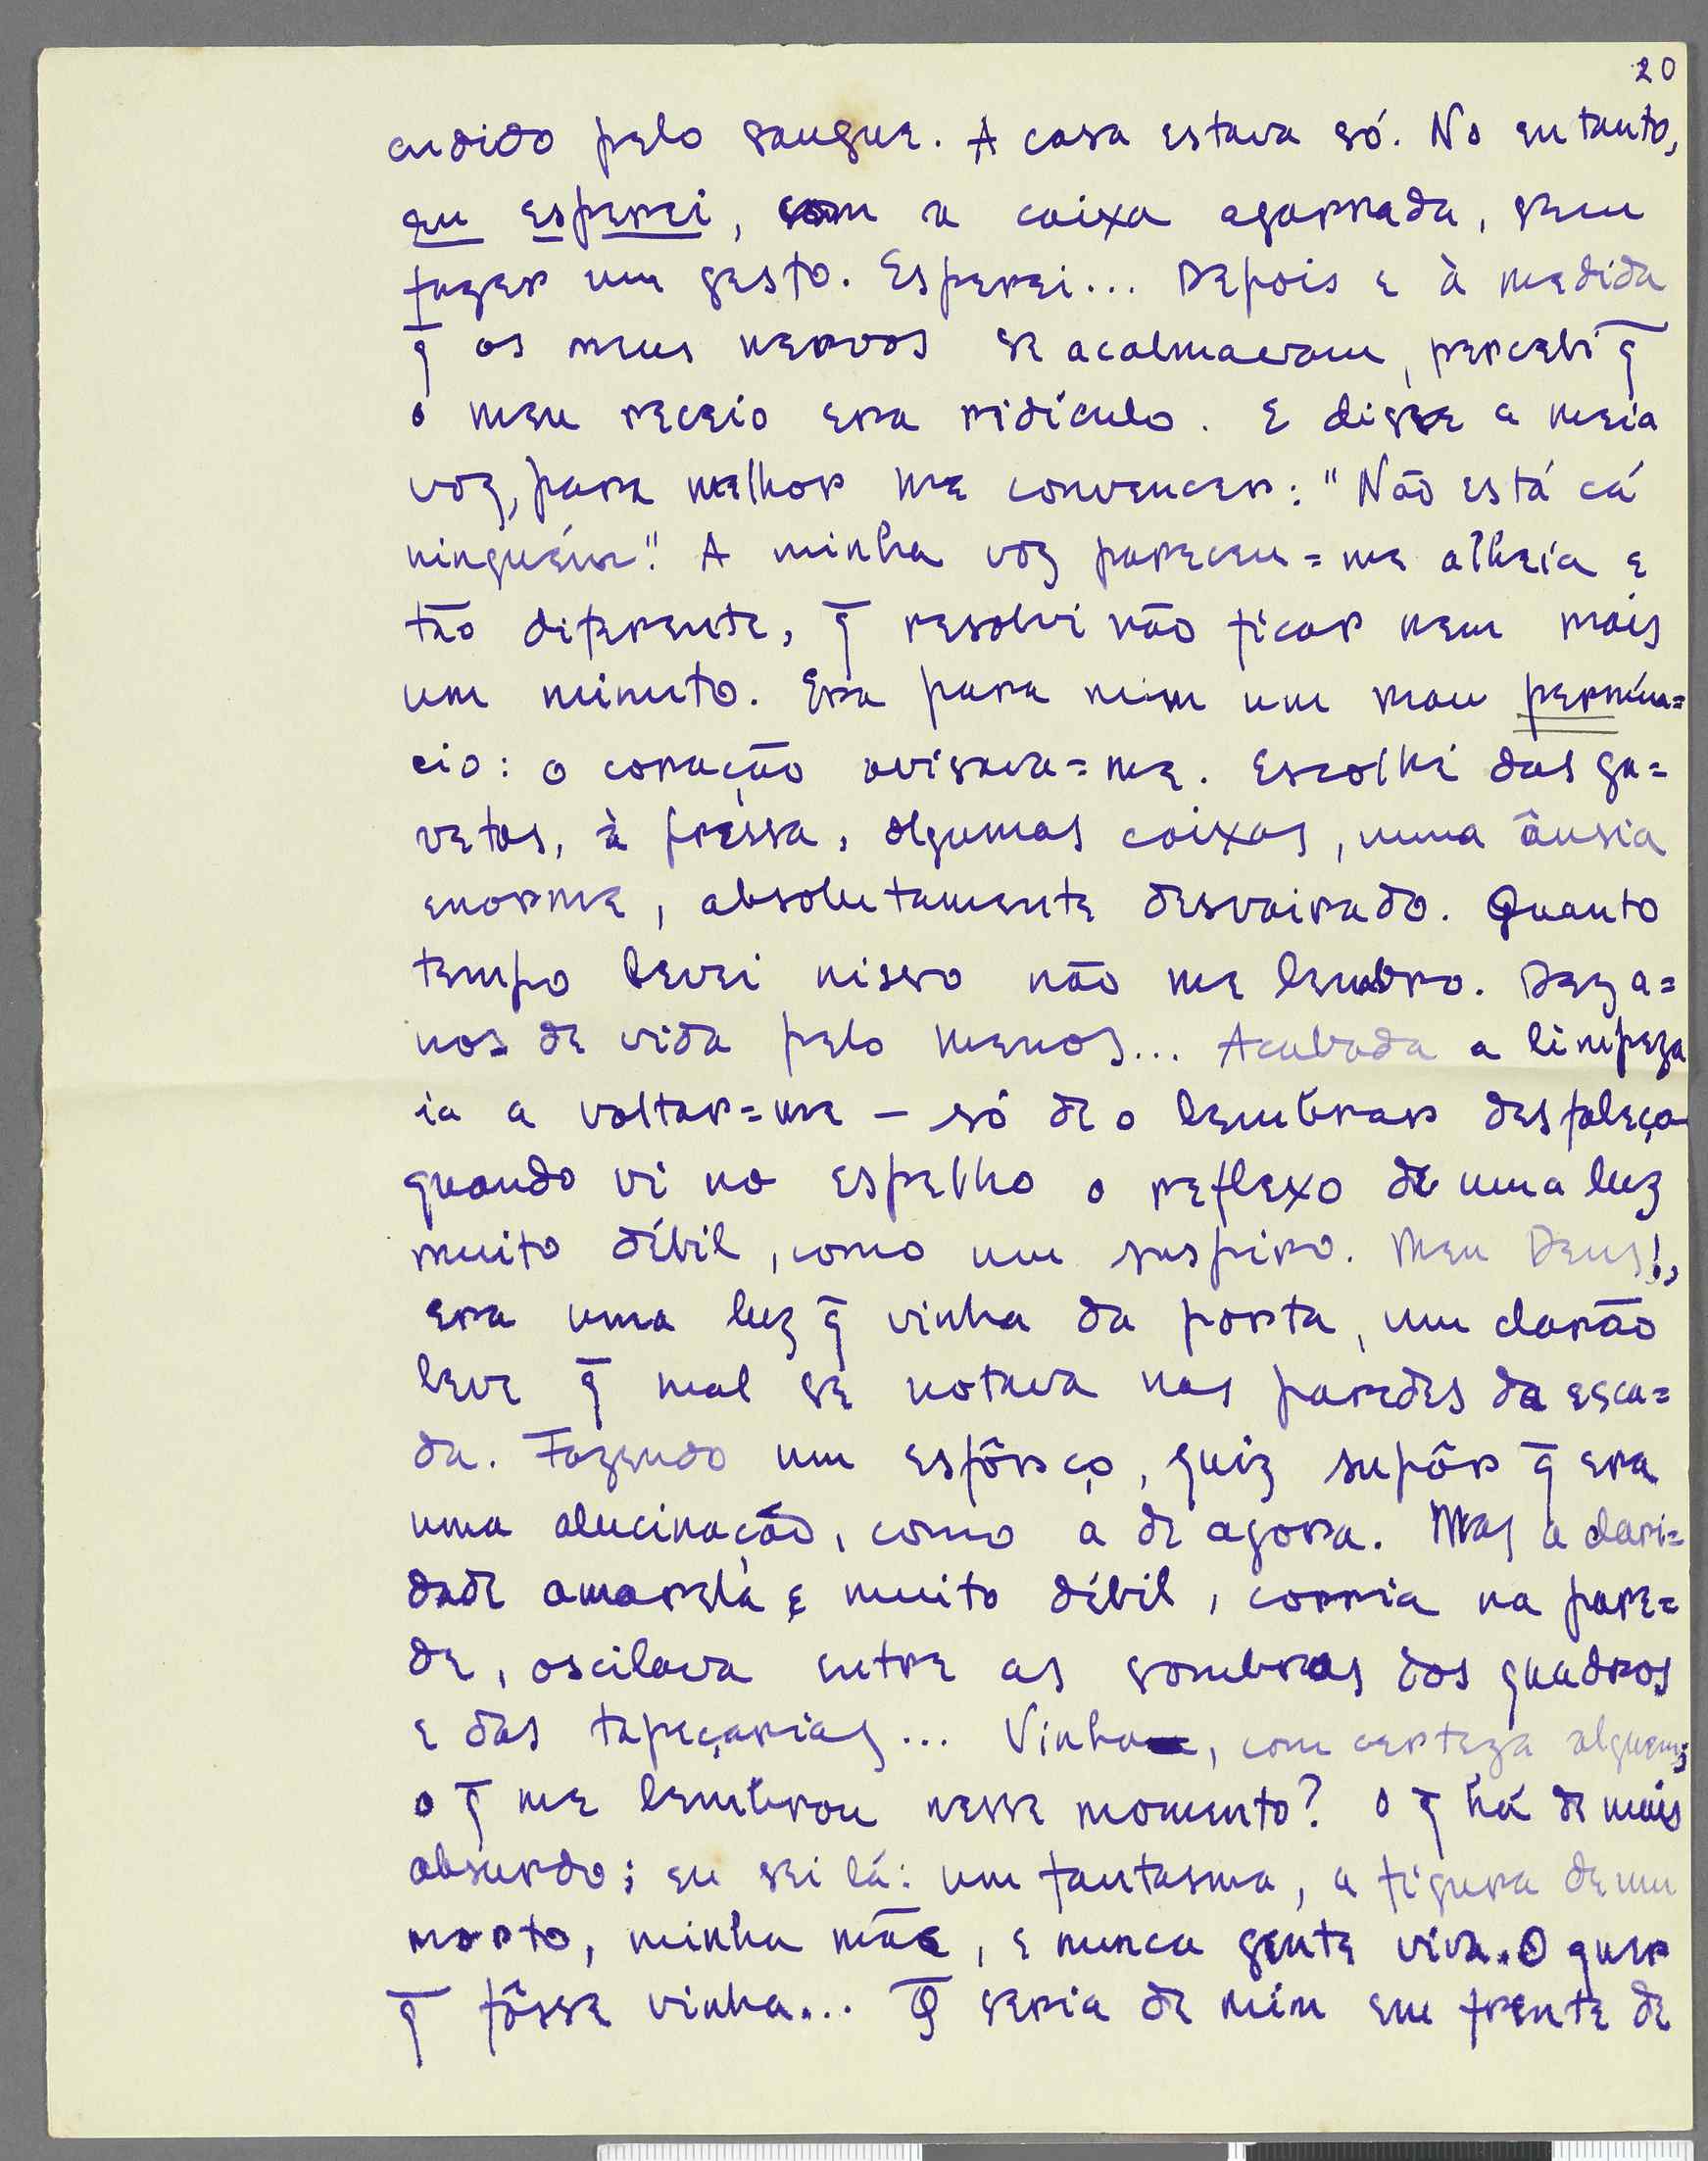 20
cudido pelo sangue. A casa estava só. No entanto,
eu esperei, com a caixa agarrada, sem
fazer um gesto. Esperei... Depois e à medida
q̄ os meus nervos se acalmavam, percebi q̄
o meu receio era ridículo. E disse a meia
voz, para melhor me convencer: "Não está cá
ninguém". A minha voz pareceu=me alheia e
tão diferente, q̄ resolvi não ficar nem mais
um minuto. Era para mim um mau pernún=
cio: o coração avisava=me. Escolhi das ga=
vetas, à pressa, algumas caixas, numa ânsia
enorme, absolutamente desvairado. Quanto
tempo levei nisso não me lembro. Dez a=
nos de vida pelo menos... Acabada a limpeza
ia a voltar=me — só de o lembrar desfaleço
quando vi no espelho o reflexo de uma luz
muito débil, como um suspiro. Meu Deus!,
era uma luz q̄ vinha da porta, um clarão
leve q̄ mal se notava nas paredes da esca=
da. Fazendo um esfôrço, quiz supôr q̄ era
uma alucinação, como a de agora. Mas a clari=
dade amarela e muito débil, corria na pare=
de, oscilava entre as sombras dos quadros
e das tapeçarias... Vinha, com certeza alguem;
o q̄ me lembrou nesse momento? O q̄ há de mais
absurdo; eu sei lá: um fantasma, a figura de um
morto, minha mãe, e nunca gente viva. O quer
q̄ fôsse vinha... Q̄ seria de mim em frente de